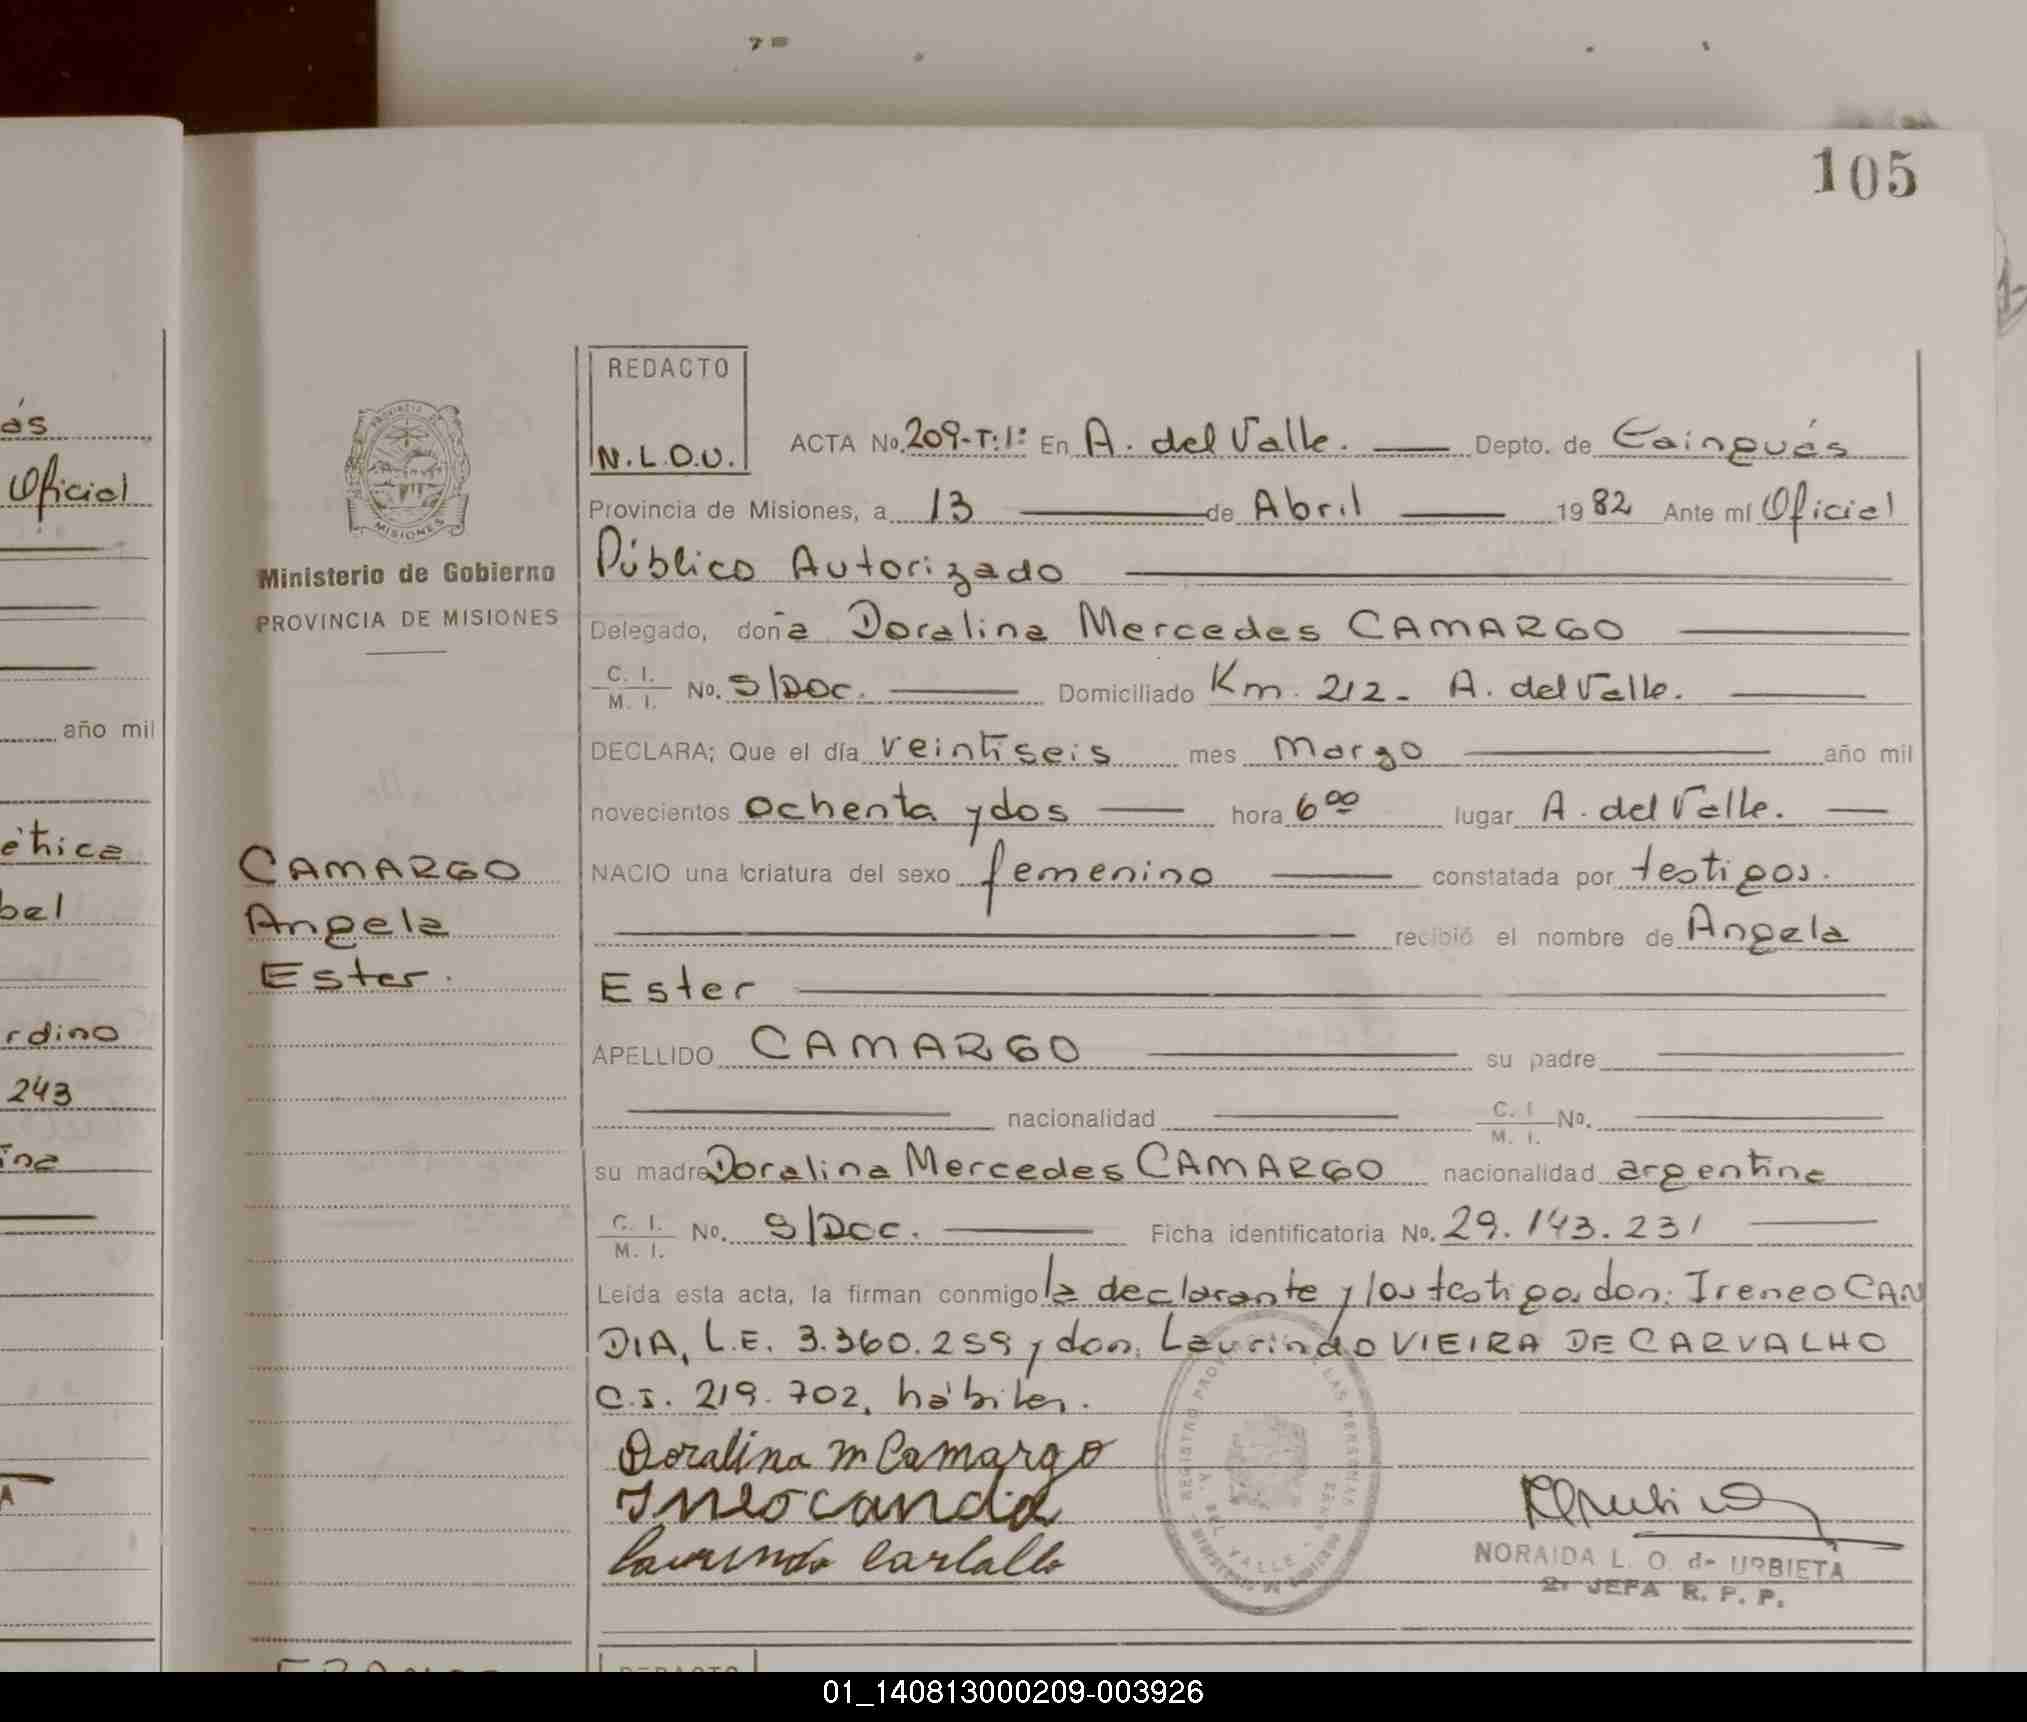 105
REDACTO
N.L.O.U.
ACTA No. 209-T:1: En A. del Valle. Depto. de Cainguás
Provincia de Misiones, a 13 de Abril 1982 Ante mí Oficial
Público Autorizado
Delegado, doña Doralina Mercedes CAMARGO
C. I. / M. I. No. S/Doc. Domiciliado Km. 212- A. del Valle.
DECLARA; Que el día veintiseis mes Marzo año mil
novecientos ochenta y dos hora 6 00 lugar A. del Valle.
NACIO una criatura del sexo femenino constatada por testigos.
recibió el nombre de Angela
Ester
APELLIDO CAMARGO su padre
nacionalidad C. I / M. I. No.
su madre Doralina Mercedes CAMARGO nacionalidad argentina
C. I. / M. I. No. S/Doc. Ficha identificatoria No. 29.143.231
Leída esta acta, la firman conmigo la declarante y los testigos don: Ireneo CAN
DIA, L.E. 3.360.259 y don: Laurindo VIEIRA DE CARVALHO
C.I. 219.702, hábiles.
Doralina M Camargo
NORAIDA L. O. de URBIETA
2ª JEFA R. P. P.
PROVINCIA DE
MISIONES
Ministerio de Gobierno
PROVINCIA DE MISIONES
CAMARGO
Angela
Ester.
ás
Oficial
año mil
rdino
243
ina
REDACTO
01_140813000209-003926